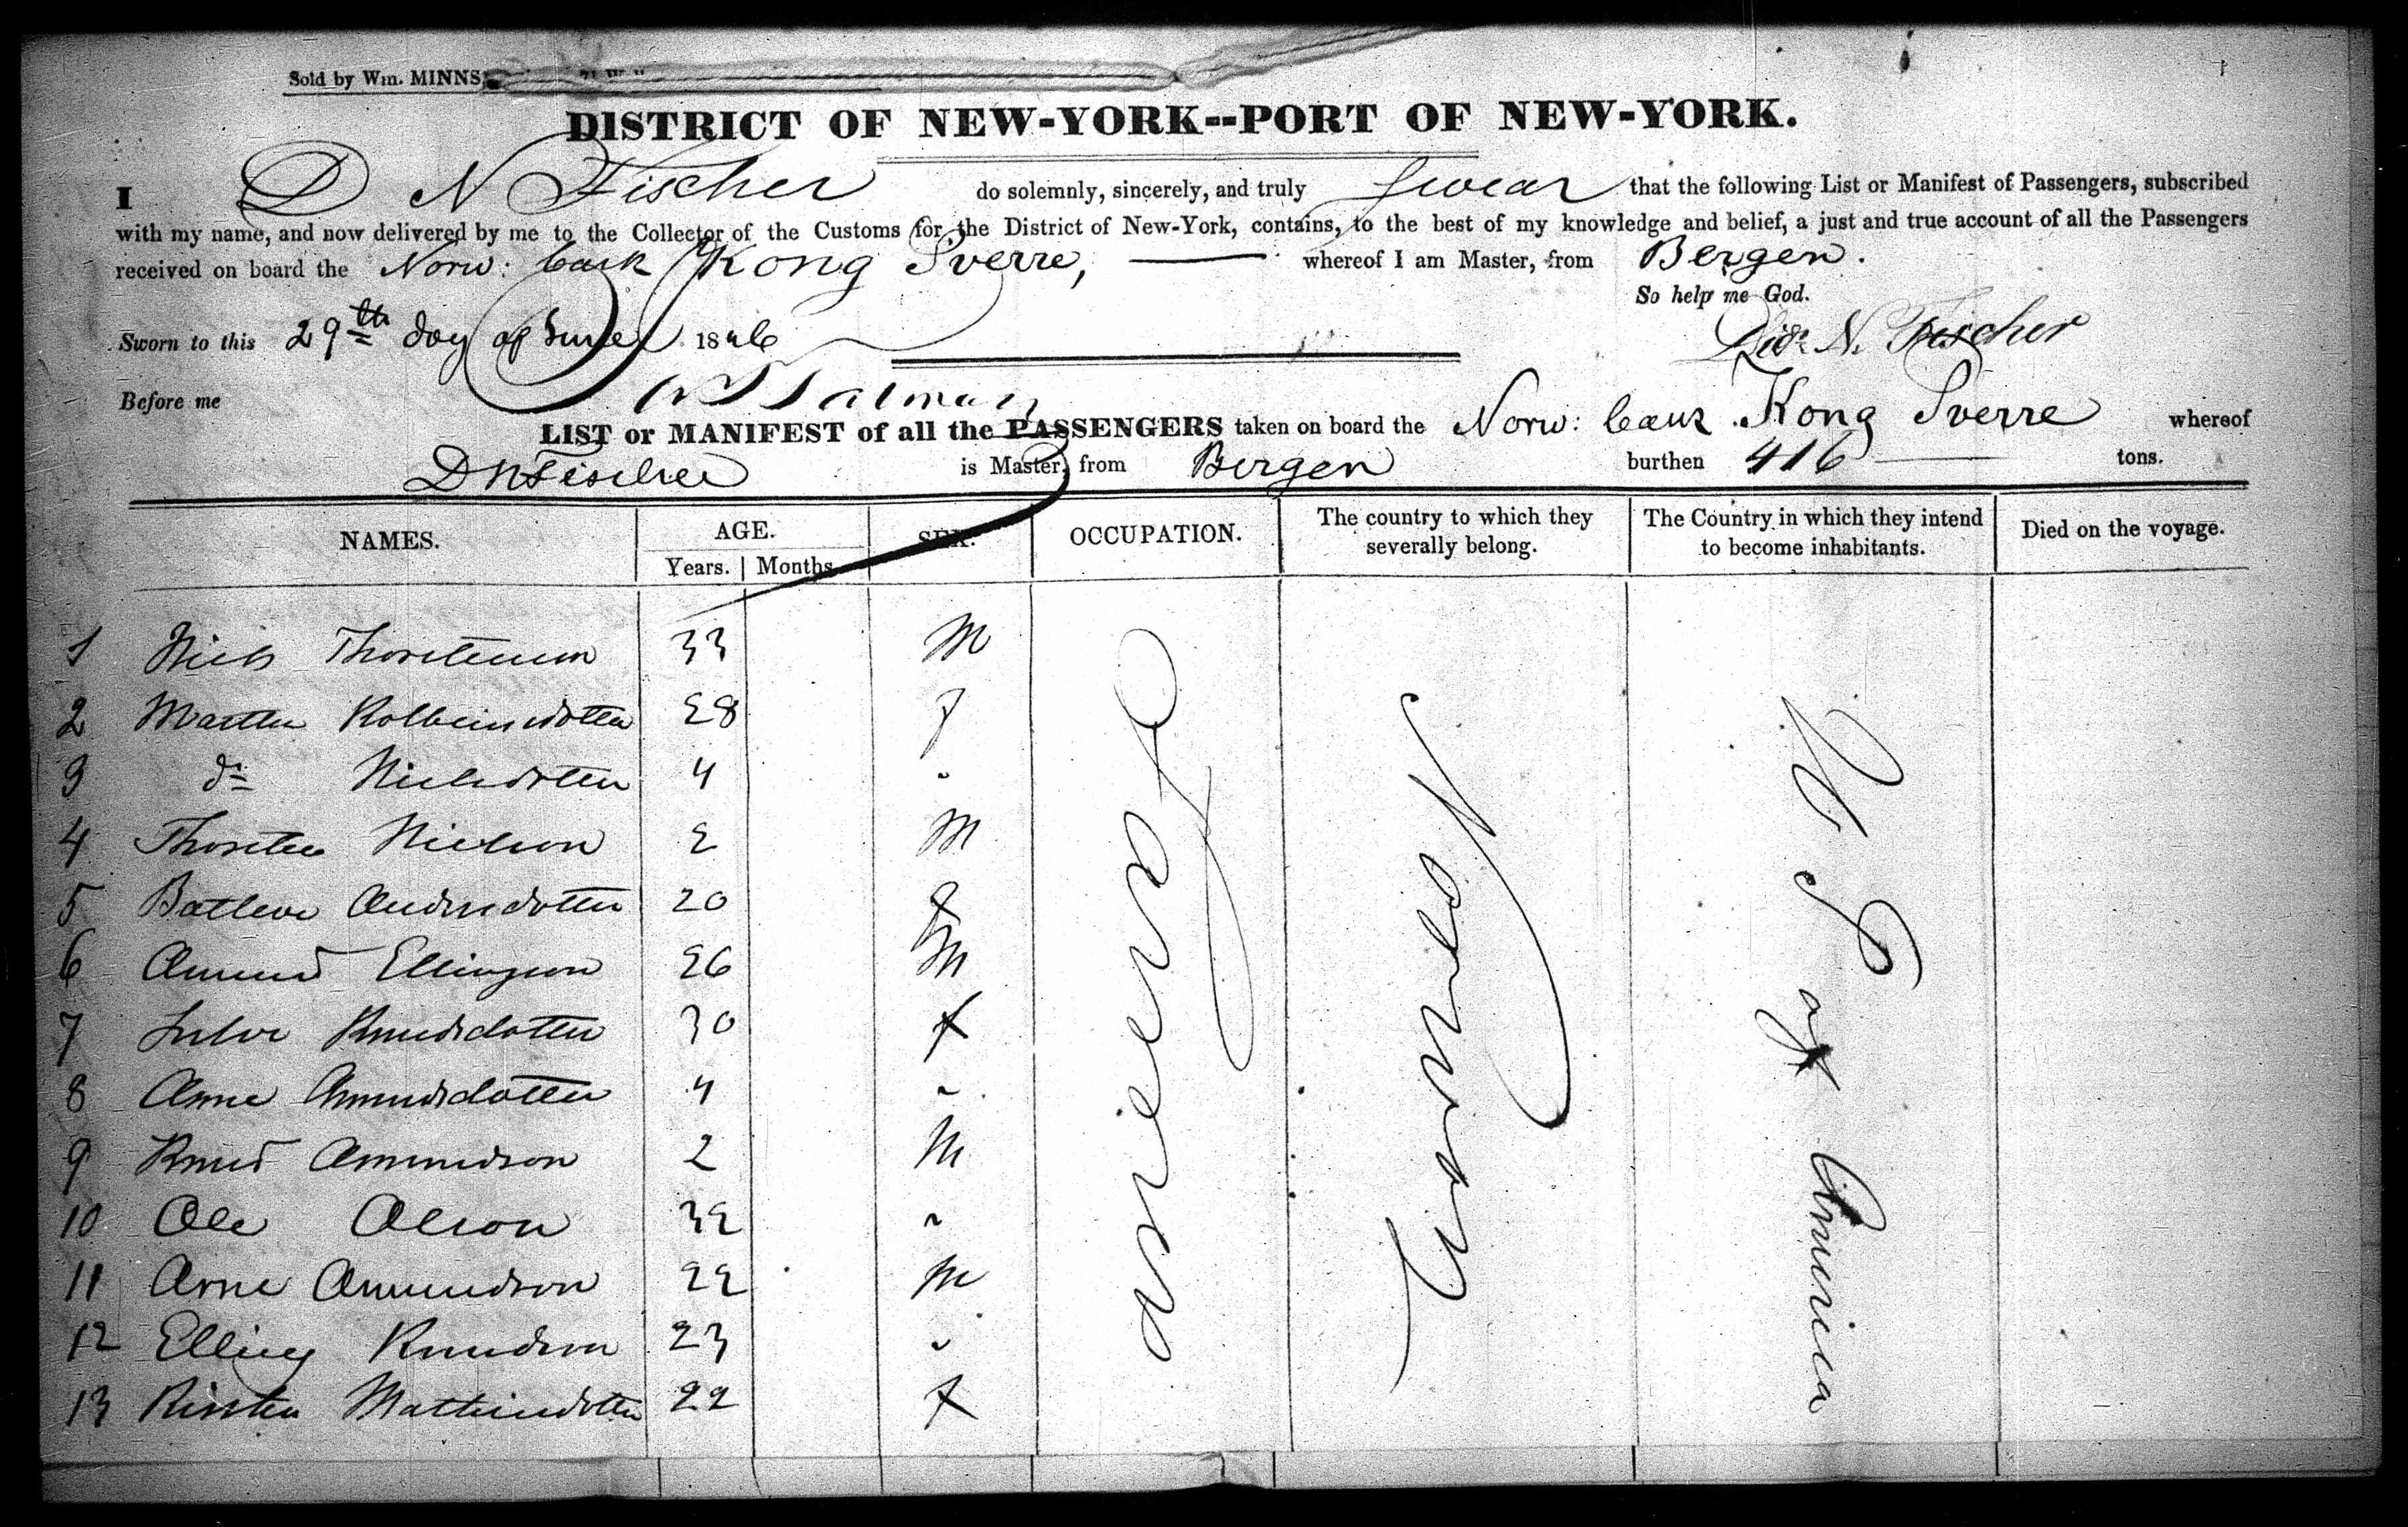 Sold by Wm. MINNS,
DISTRICT OF NEW-YORK--PORT OF NEW-YORK.
I D N Fischer do solemnly, sincerely, and truly swear that the following List or Manifest of Passengers, subscribed
with my name, and now delivered by me to the Collector of the Customs for the District of New-York, contains, to the best of my knowledge and belief, a just and true account of all the Passengers
received on board the Norw: bark Kong Sverre, whereof I am Master, from Bergen.
So help me God.
Sworn to this 29th day of June 1846 N. Fischer
Before me
LIST or MANIFEST of all the PASSENGERS taken on board the Norw: bark Kong Sverre whereof
D N Fischer is Master, from Bergen burthen 416 tons.
NAMES. AGE. SEX. OCCUPATION. The country to which they severally belong. The Country in which they intend to become inhabitants. Died on the voyage.
Years. Months.
1 Niels Thorstenson 33 M
2 Martha Kolbeinsdotter 28 f
3 do Nielsdotter 4 "
4 Thorsten Nielson 2 M
5 Andersdotter 20 f
6 Amund Ellingson 26 M
7 Knudsdotter 30 f
8 Anne Amundsdotter 4 "
9 Knud Amundson 2 M
10 Ole Olson 32 "
11 Arne Amundson 22 M
12 Elling Knudson 23 "
13 Kirsten Mathiasdotter 22 f
Farmers
Norway
U S of America